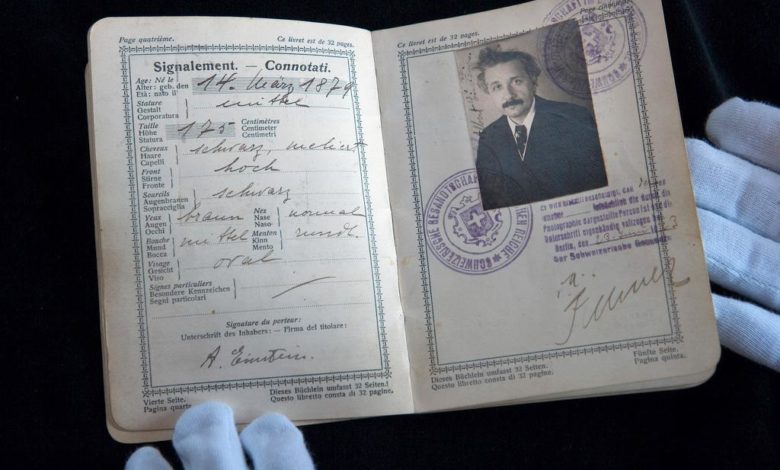 Page quatrième.
Ce livret est de 32 pages.
Signalement. — Connotati.
Age: Né le
Alter: geb. den
Età: nato il
14. März 1879
Stature
Gestalt
Corporatura
mittel
Taille
Höhe
Statura
175
Centimètres
Centimeter
Centimetri
Cheveux
Haare
Capelli
schwarz, meliert
Front
Stirne
Fronte
hoch
Sourcils
Augenbrauen
Sopracciglia
schwarz
Yeux
Augen
Occhi
braun
Nez
Nase
Naso
normal
Bouche
Mund
Bocca
mittel
Menton
Kinn
Mento
rund
Visage
Gesicht
Viso
oval
Signes particuliers
Besondere Kennzeichen
Segni particolari
Signature du porteur:
Unterschrift des Inhabers: — Firma del titolare:
A. Einstein.
Vierte Seite.
Pagina quarta
Dieses Büchlein umfasst 32 Seiten.
Questo libretto consta di 32 pagine.
Ce livret est de 32 pages.
SCHWEIZERISCHE GESANDTSCHAFT
Photographie dargestellte Person ist und die
Unterschrift eigenhändig vollzogen hat
Berlin, den
der Schweizerische Gesandte
i. A.
Dieses Büchlein umfasst 32 Seiten.
Questo libretto consta di 32 pagine.
Fünfte Seite.
Pagina quinta.